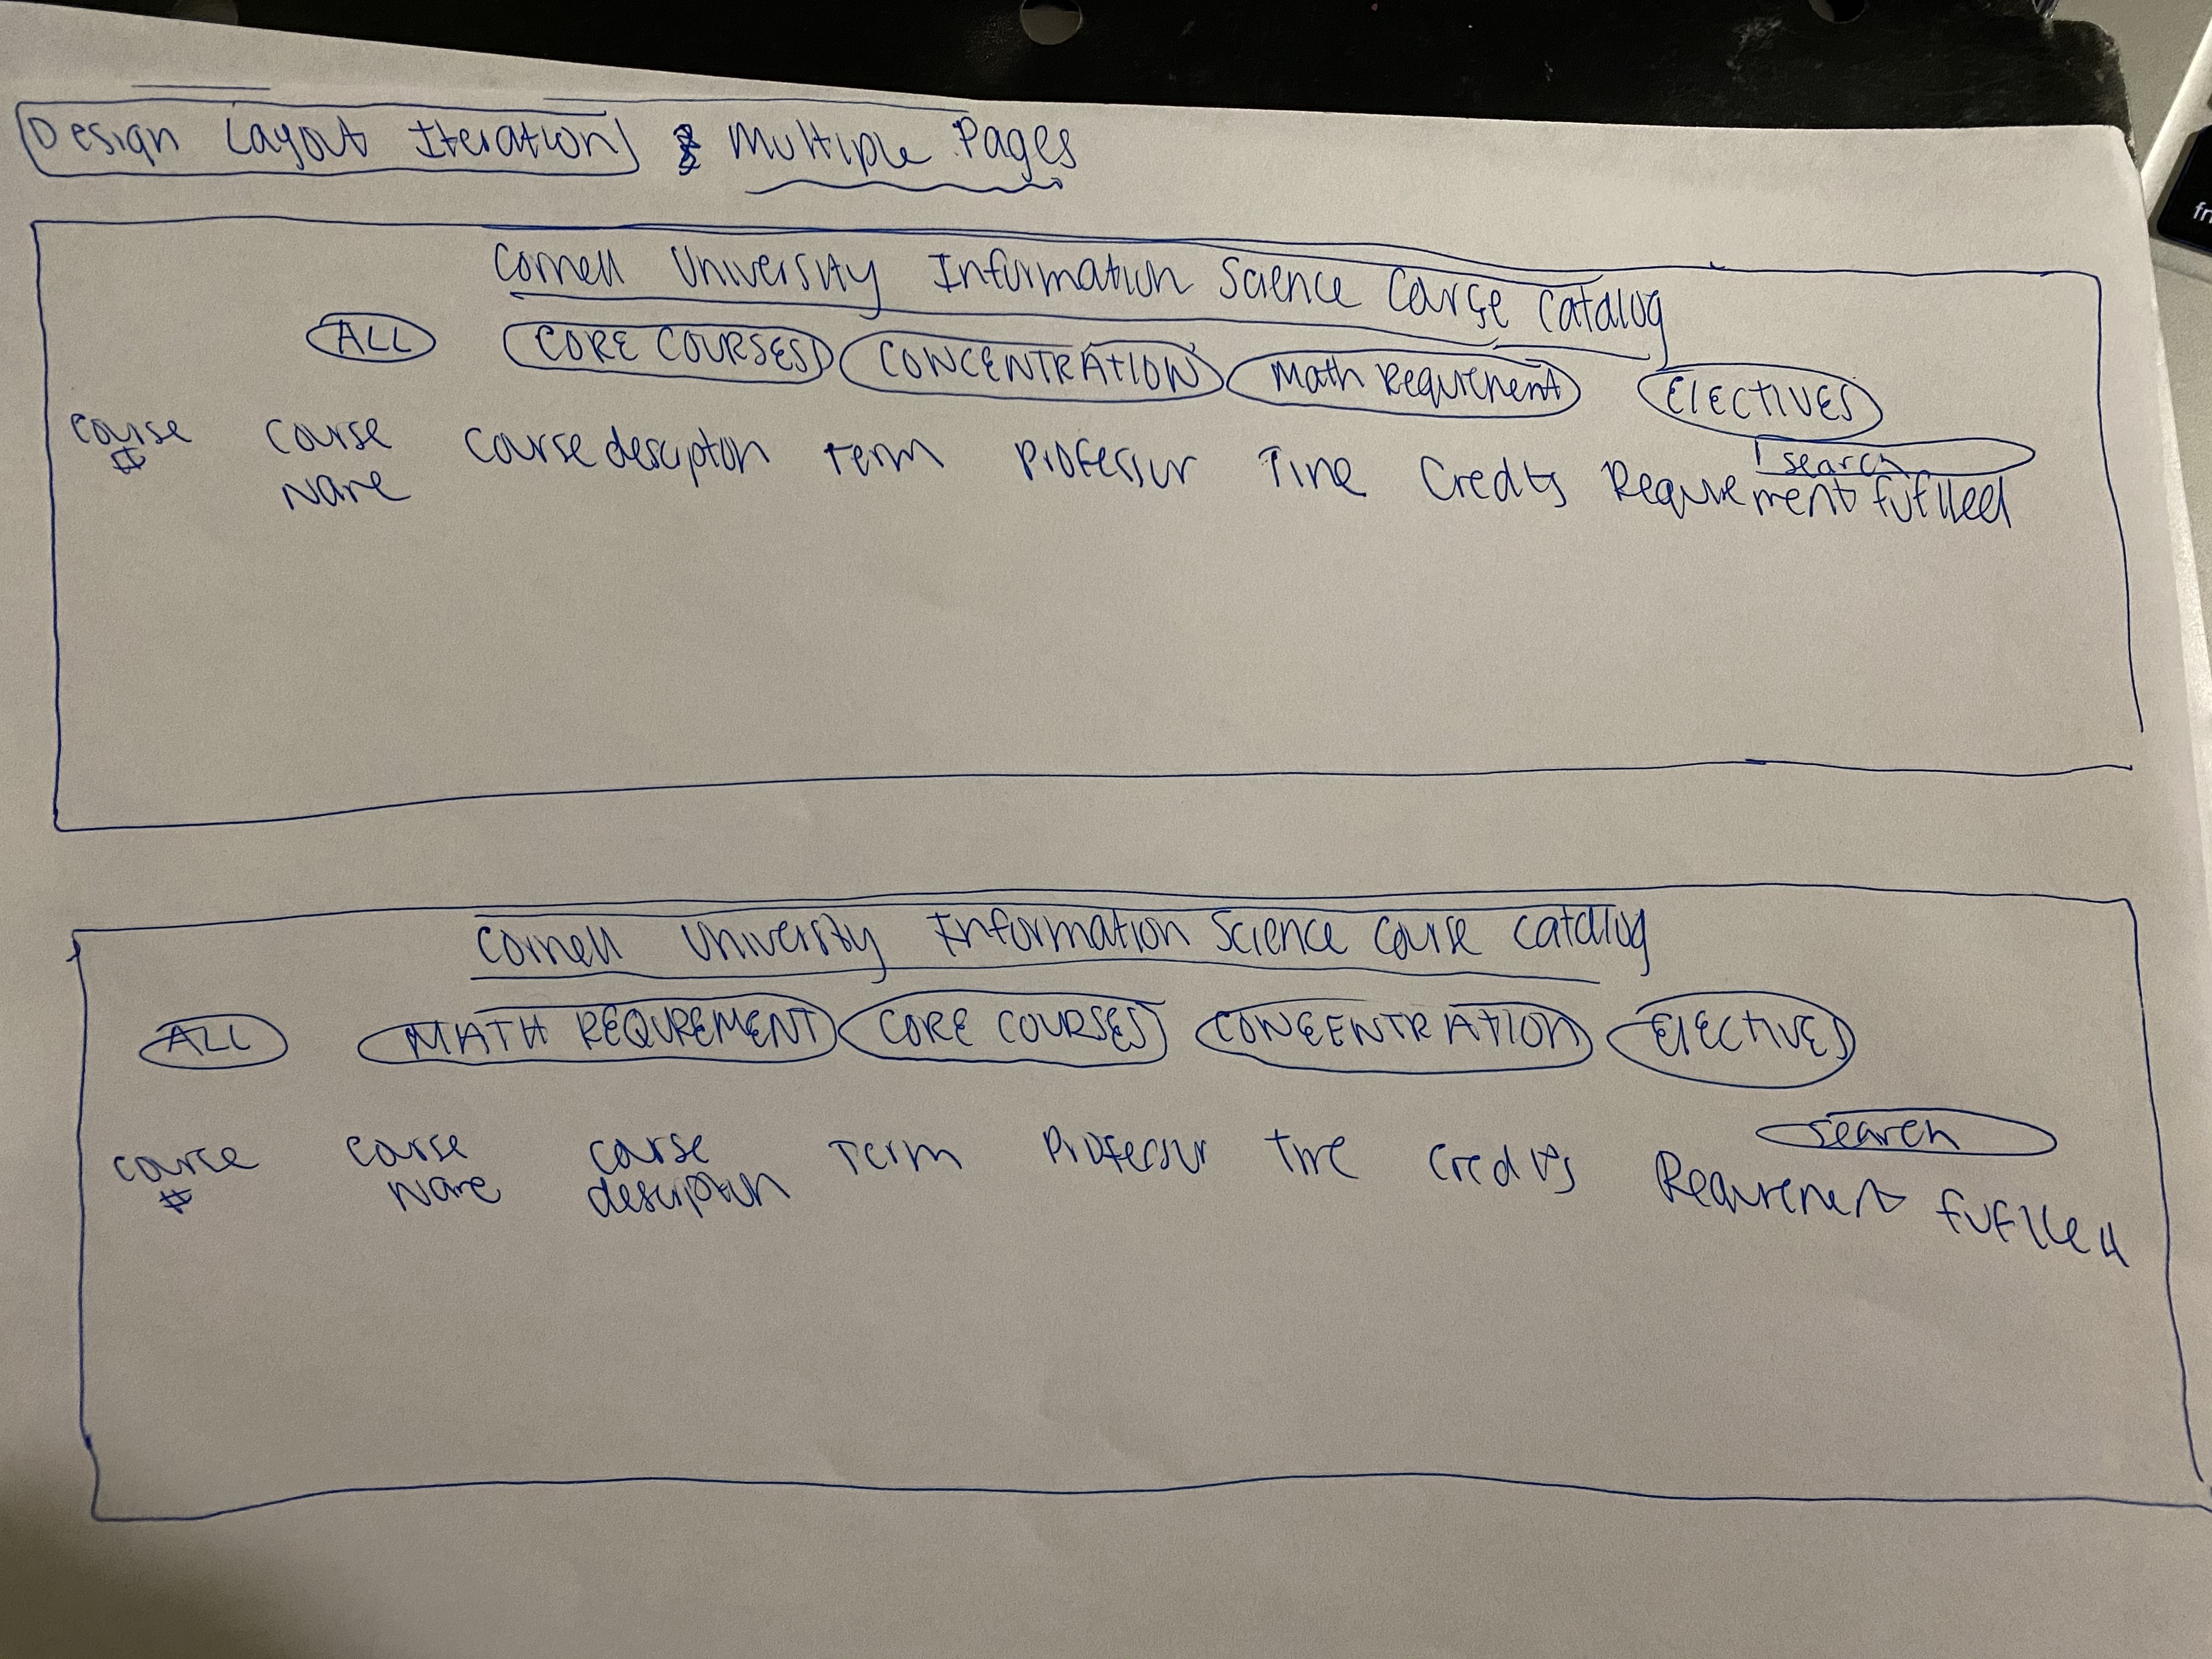 Design Layout Iteration & Multiple Pages
Cornell University Information Science Course Catalog
ALL CORE COURSES CONCENTRATION Math Requirement ElECTIVES
search
course # course Name Course desciption Term Professor Time Credits Requirement fufilled
Cornell University Information Science Course Catalog
ALL MATH REQUREMENT CORE COURSES CONCENTRATION ElECTIVES
search
course # course Name course desciption Term Professor Time Credits Requirement fufilled
fn